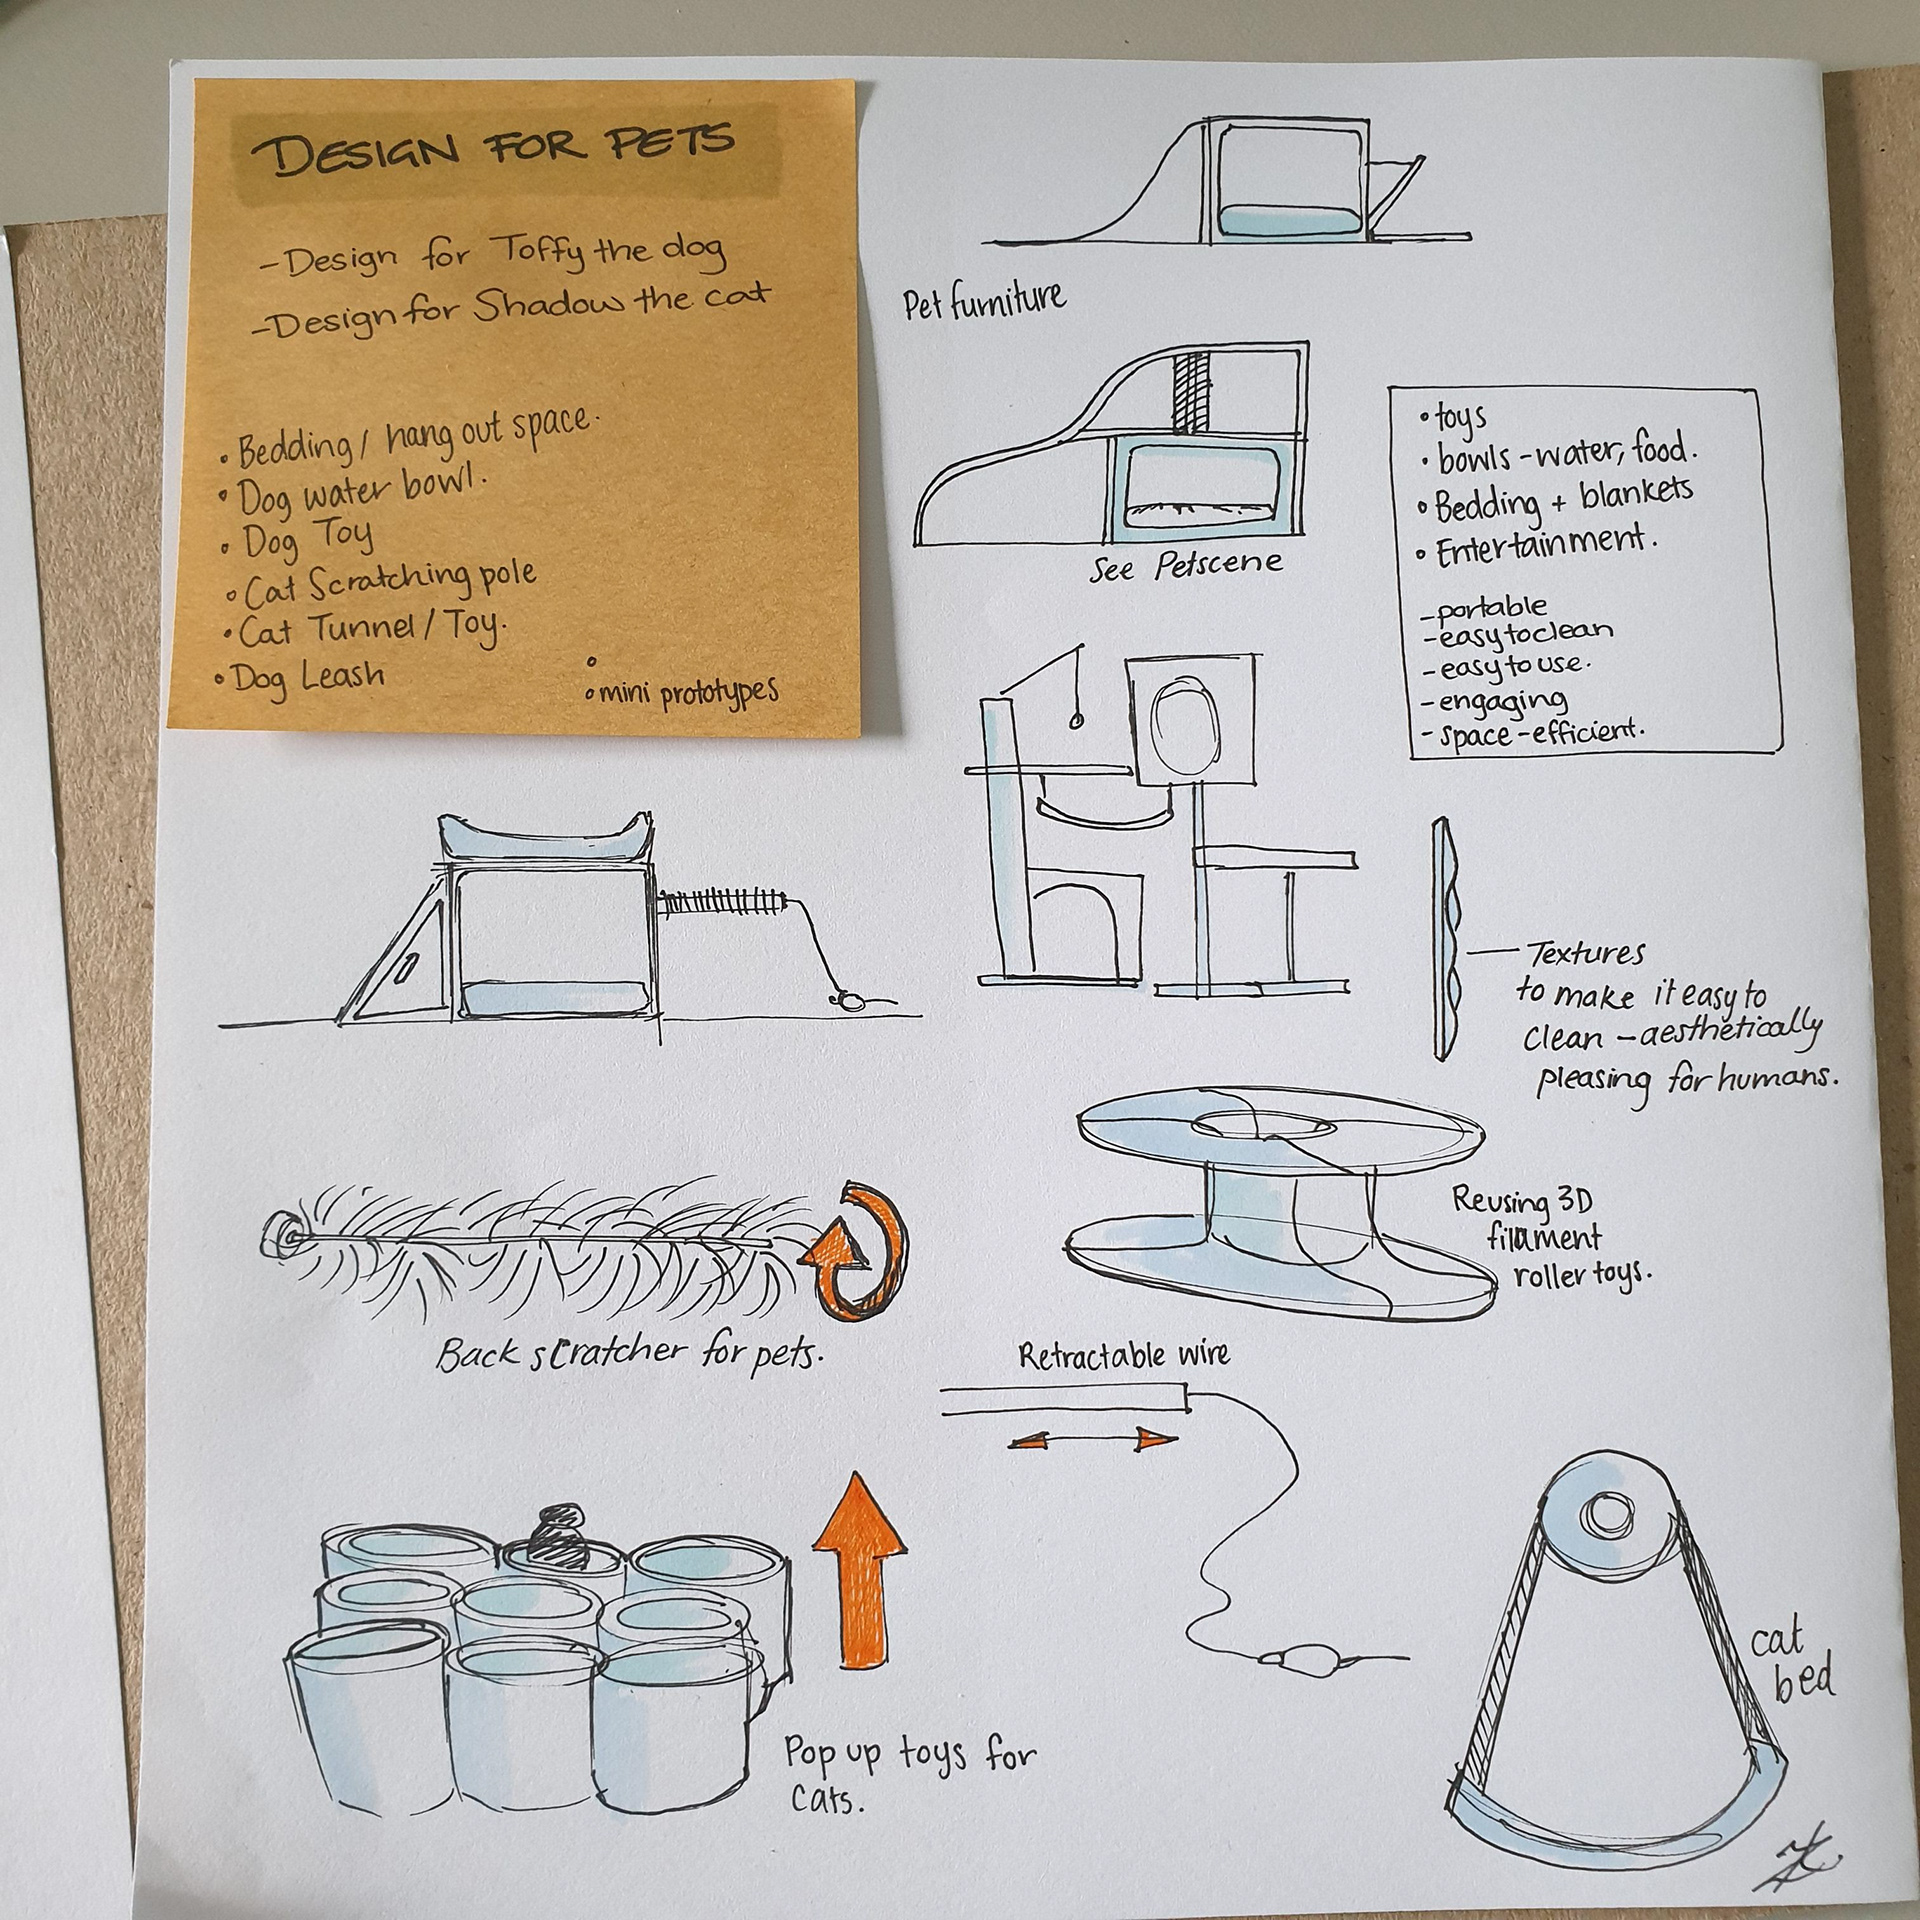 DESIGN FOR PETS
-Design for Toffy the dog
-Design for Shadow the cat
• Bedding / hang out space.
• Dog water bowl.
• Dog Toy
• Cat Scratching pole
• Cat Tunnel / Toy.
• Dog Leash
• mini prototypes
Pet furniture
See Petscene
• toys
• bowls - water, food.
• Bedding + blankets
• Entertainment.
- portable
- easy to clean
- easy to use.
- engaging
- space-efficient.
Textures
to make it easy to
clean - aesthetically
pleasing for humans.
Back scratcher for pets.
Reusing 3D
filament
roller toys.
Retractable wire
Pop up toys for
cats.
cat
bed